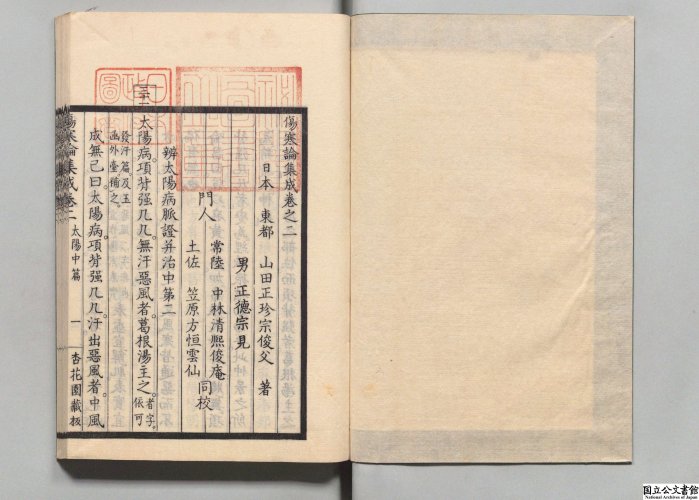 傷寒論集成卷之二
日本 東都 山田正珍宗俊父 著
男 正德宗見
門人 常陸 中林清熙俊庵
土佐 笠原方恒雲仙 同校
辨太陽病脈證并治中第二
三十一
太陽病項背强几几無汗惡風者葛根湯主之 者字依可
發汗篇及玉
函外臺補之
成無己曰太陽病項背强几几汗出惡風者中風
傷寒論集成卷二 太陽中篇 一 杏花園藏板
国立公文書館
National Archives of Japan